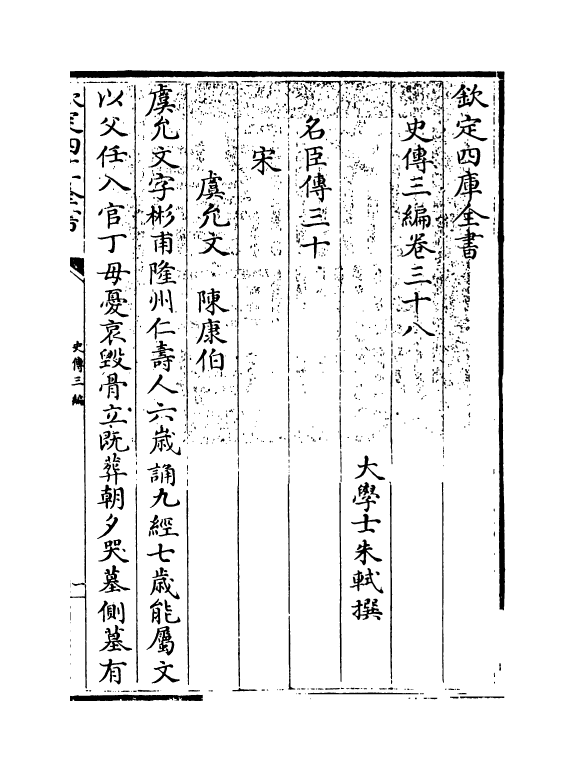 欽定四庫全書
史傳三編卷三十八
大學士朱軾撰
名臣傳三十
宋
虞允文　陳康伯
虞允文字彬甫隆州仁壽人六歳誦九經七歳能屬文
以父任入官丁母憂哀毀骨立既葬朝夕哭墓側墓有
欽定四庫全書
史傳三編
一